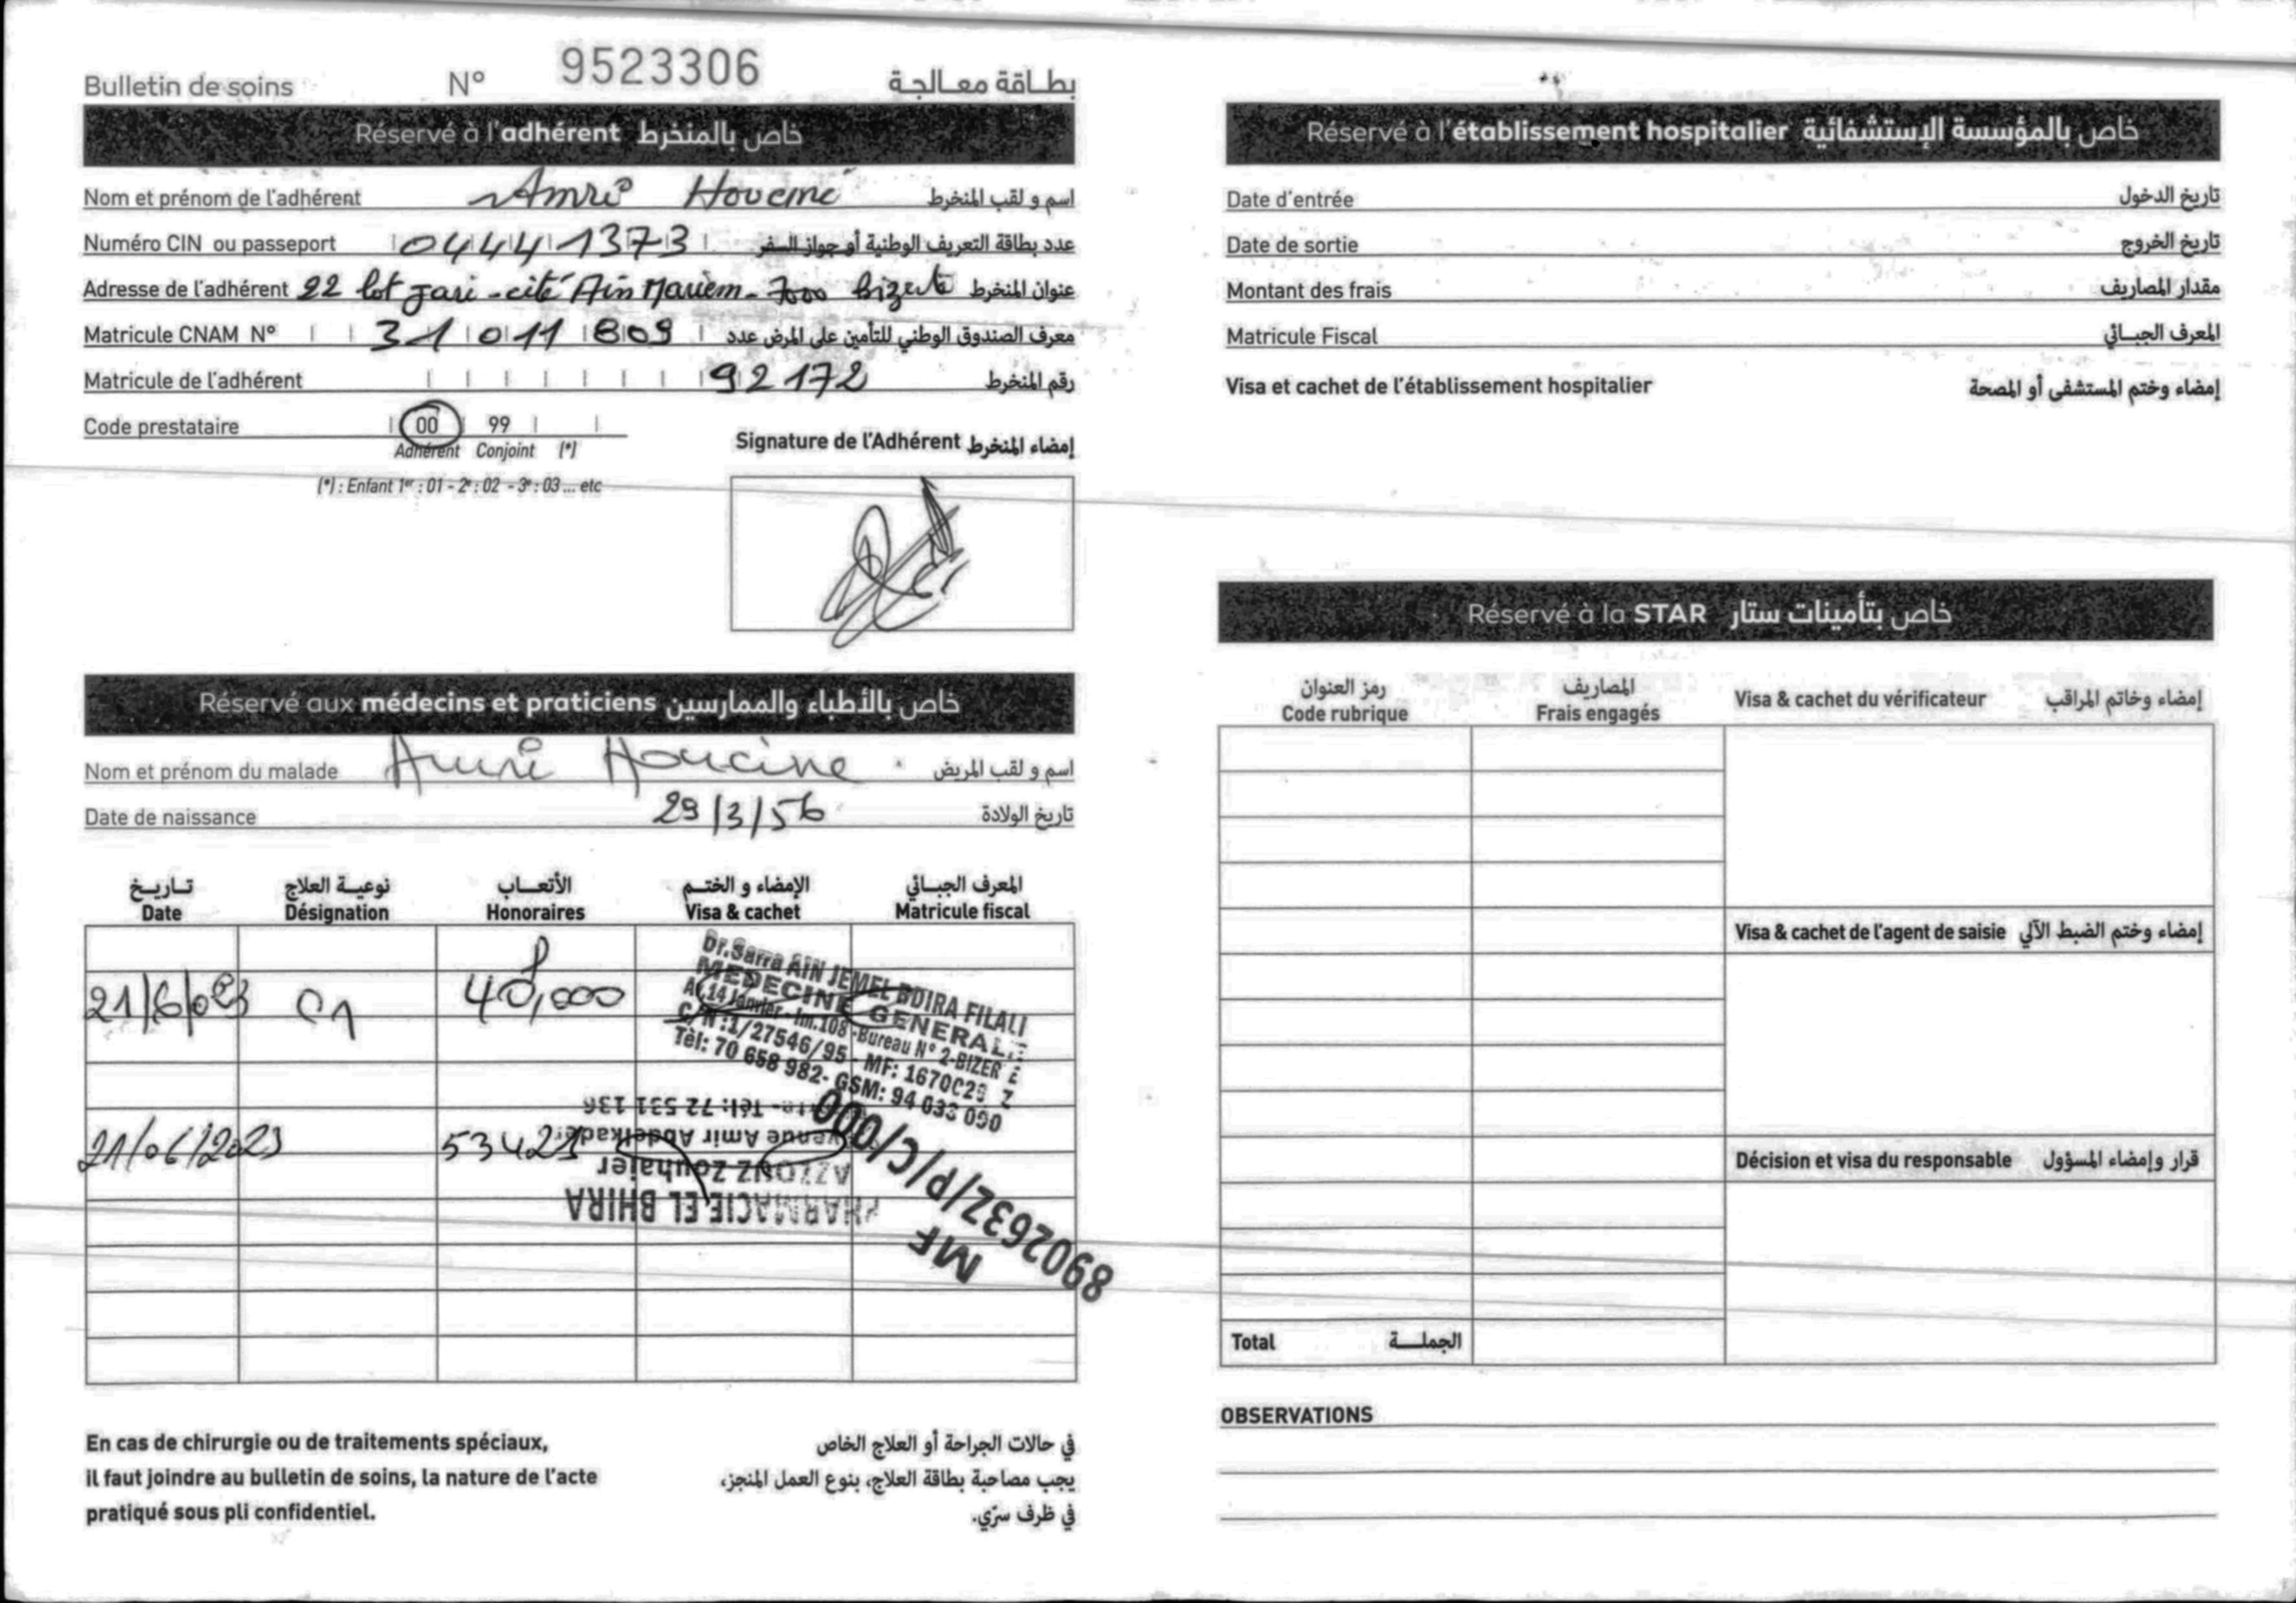 Bulletin de soins N° 9523306 بطاقة معالجة
Réservé à l'adhérent خاص بالمنخرط
Nom et prénom de l'adhérent Amri اسم و لقب المنخرط
Numéro CIN ou passeport 04441373 عدد بطاقة التعريف الوطنية أو جواز السفر
Adresse de l'adhérent 22 lot jari - cité Ain Mariem - 7000 Bizerte عنوان المنخرط
Matricule CNAM N° 31 011 809 معرف الصندوق الوطني للتأمين على المرض عدد
Matricule de l'adhérent 92172 رقم المنخرط
Code prestataire 00 99
Adhérent Conjoint (*)
(*) : Enfant 1er : 01 - 2e : 02 - 3e : 03 ... etc
Signature de l'Adhérent إمضاء المنخرط
Réservé aux médecins et praticiens خاص بالأطباء والممارسين
Nom et prénom du malade Amri Houcine اسم و لقب المريض
Date de naissance 29/3/56 تاريخ الولادة
تاريخ نوعية العلاج الأتعاب الإمضاء و الختم المعرف الجبائي
Date Désignation Honoraires Visa & cachet Matricule fiscal
21/6/023 C1 40,000
Dr.Sarra AIN JEMEL BDIRA FILALI
MEDECINE GENERALE
Av.14 Janvier - Im.108 -Bureau N° 2-BIZERTE
C/N :1/27546/95 - MF: 1670C29 Z
Tèl: 70 658 982- GSM: 94 033 090
21/06/2023 53421
PHARMACIE EL BHIRA
AZZOUZ Zouhaier
Avenue Amir Abdelkader
Tél: 72 531 136
MF
890263Z/P/C/000
En cas de chirurgie ou de traitements spéciaux,
il faut joindre au bulletin de soins, la nature de l'acte
pratiqué sous pli confidentiel.
في حالات الجراحة أو العلاج الخاص
يجب مصاحبة بطاقة العلاج، بنوع العمل المنجز،
في ظرف سرّي.
Réservé à l'établissement hospitalier خاص بالمؤسسة الإستشفائية
Date d'entrée تاريخ الدخول
Date de sortie تاريخ الخروج
Montant des frais مقدار المصاريف
Matricule Fiscal المعرف الجبائي
Visa et cachet de l'établissement hospitalier إمضاء وختم المستشفى أو المصحة
Réservé à la STAR خاص بتأمينات ستار
رمز العنوان المصاريف
Code rubrique Frais engagés
Visa & cachet du vérificateur إمضاء وخاتم المراقب
Visa & cachet de l'agent de saisie إمضاء وختم الضبط الآلي
Décision et visa du responsable قرار وإمضاء المسؤول
Total الجملة
OBSERVATIONS